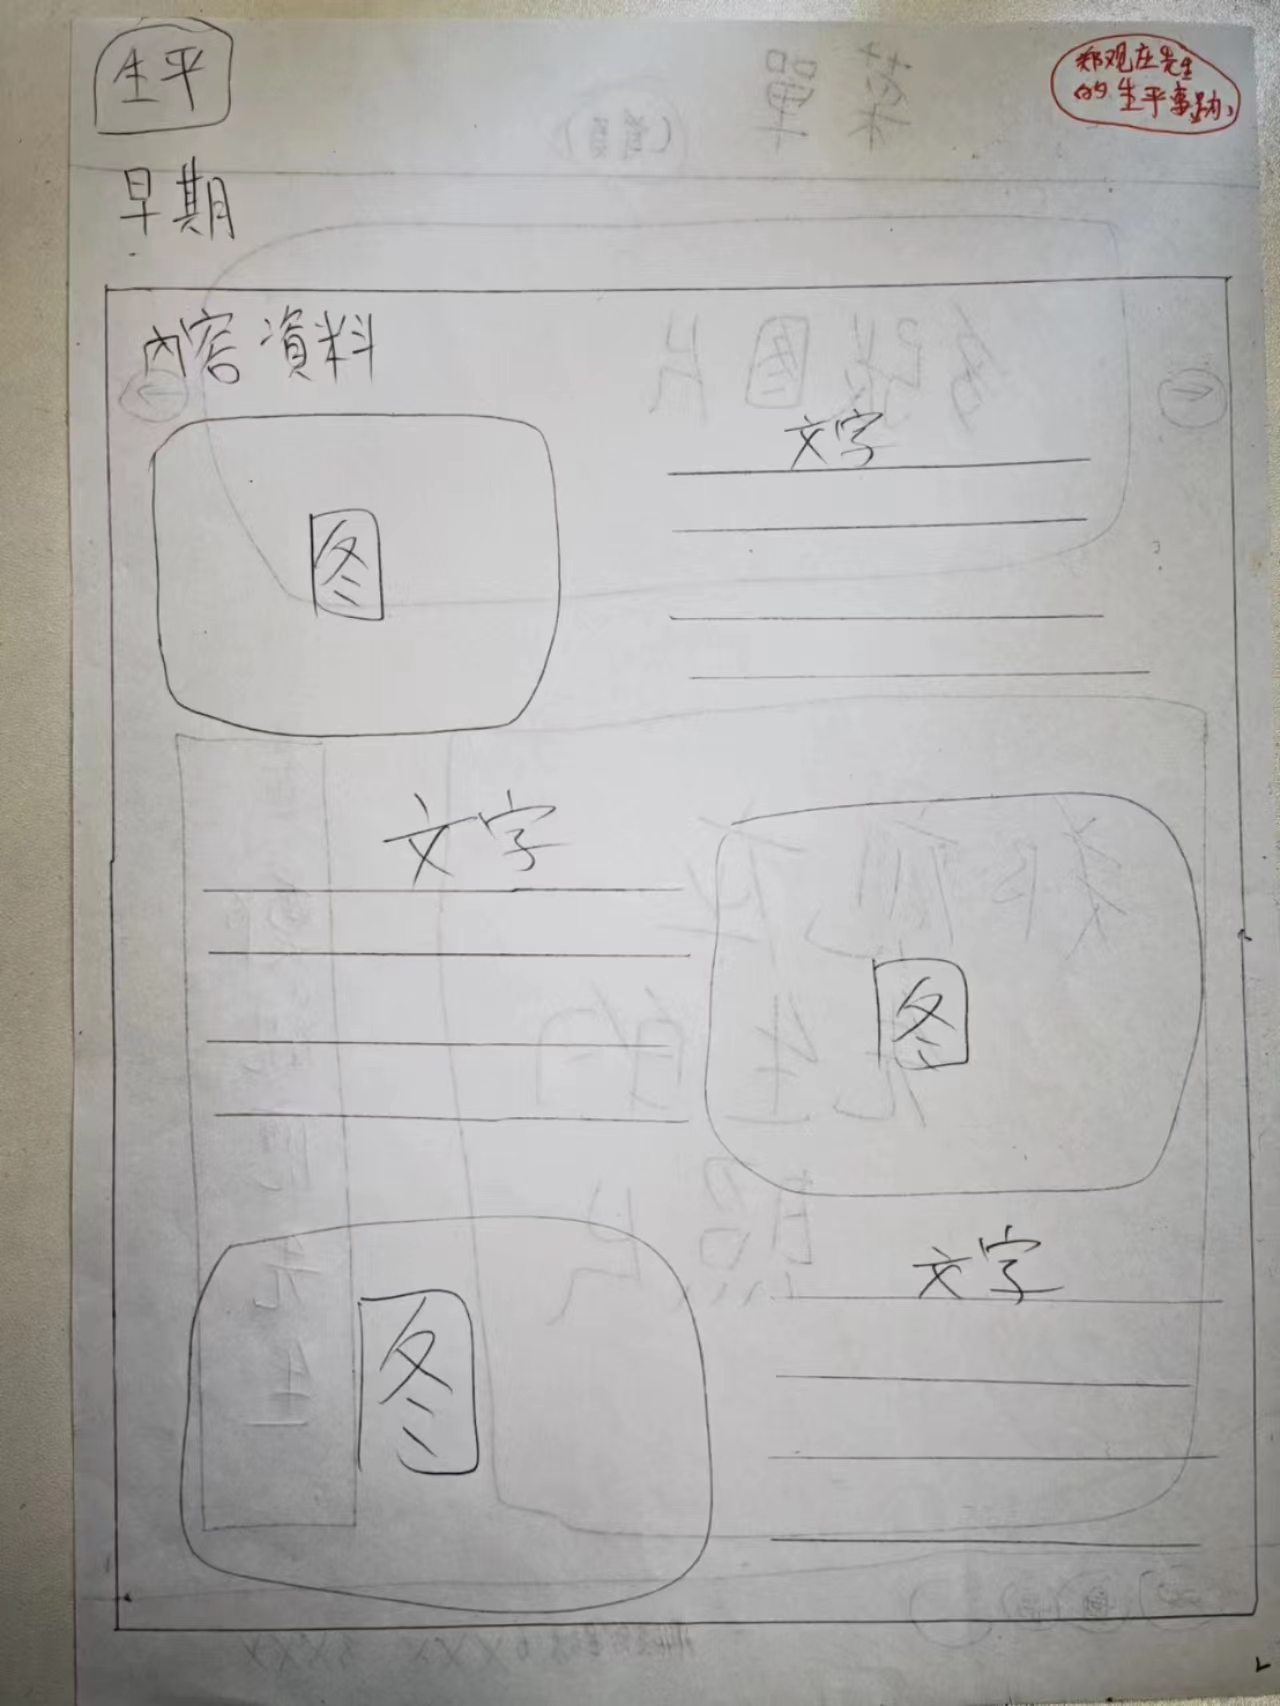 生平
郑观应先生
的生平事跡
早期
内容 資料
文字
图
文字
图
图
文字